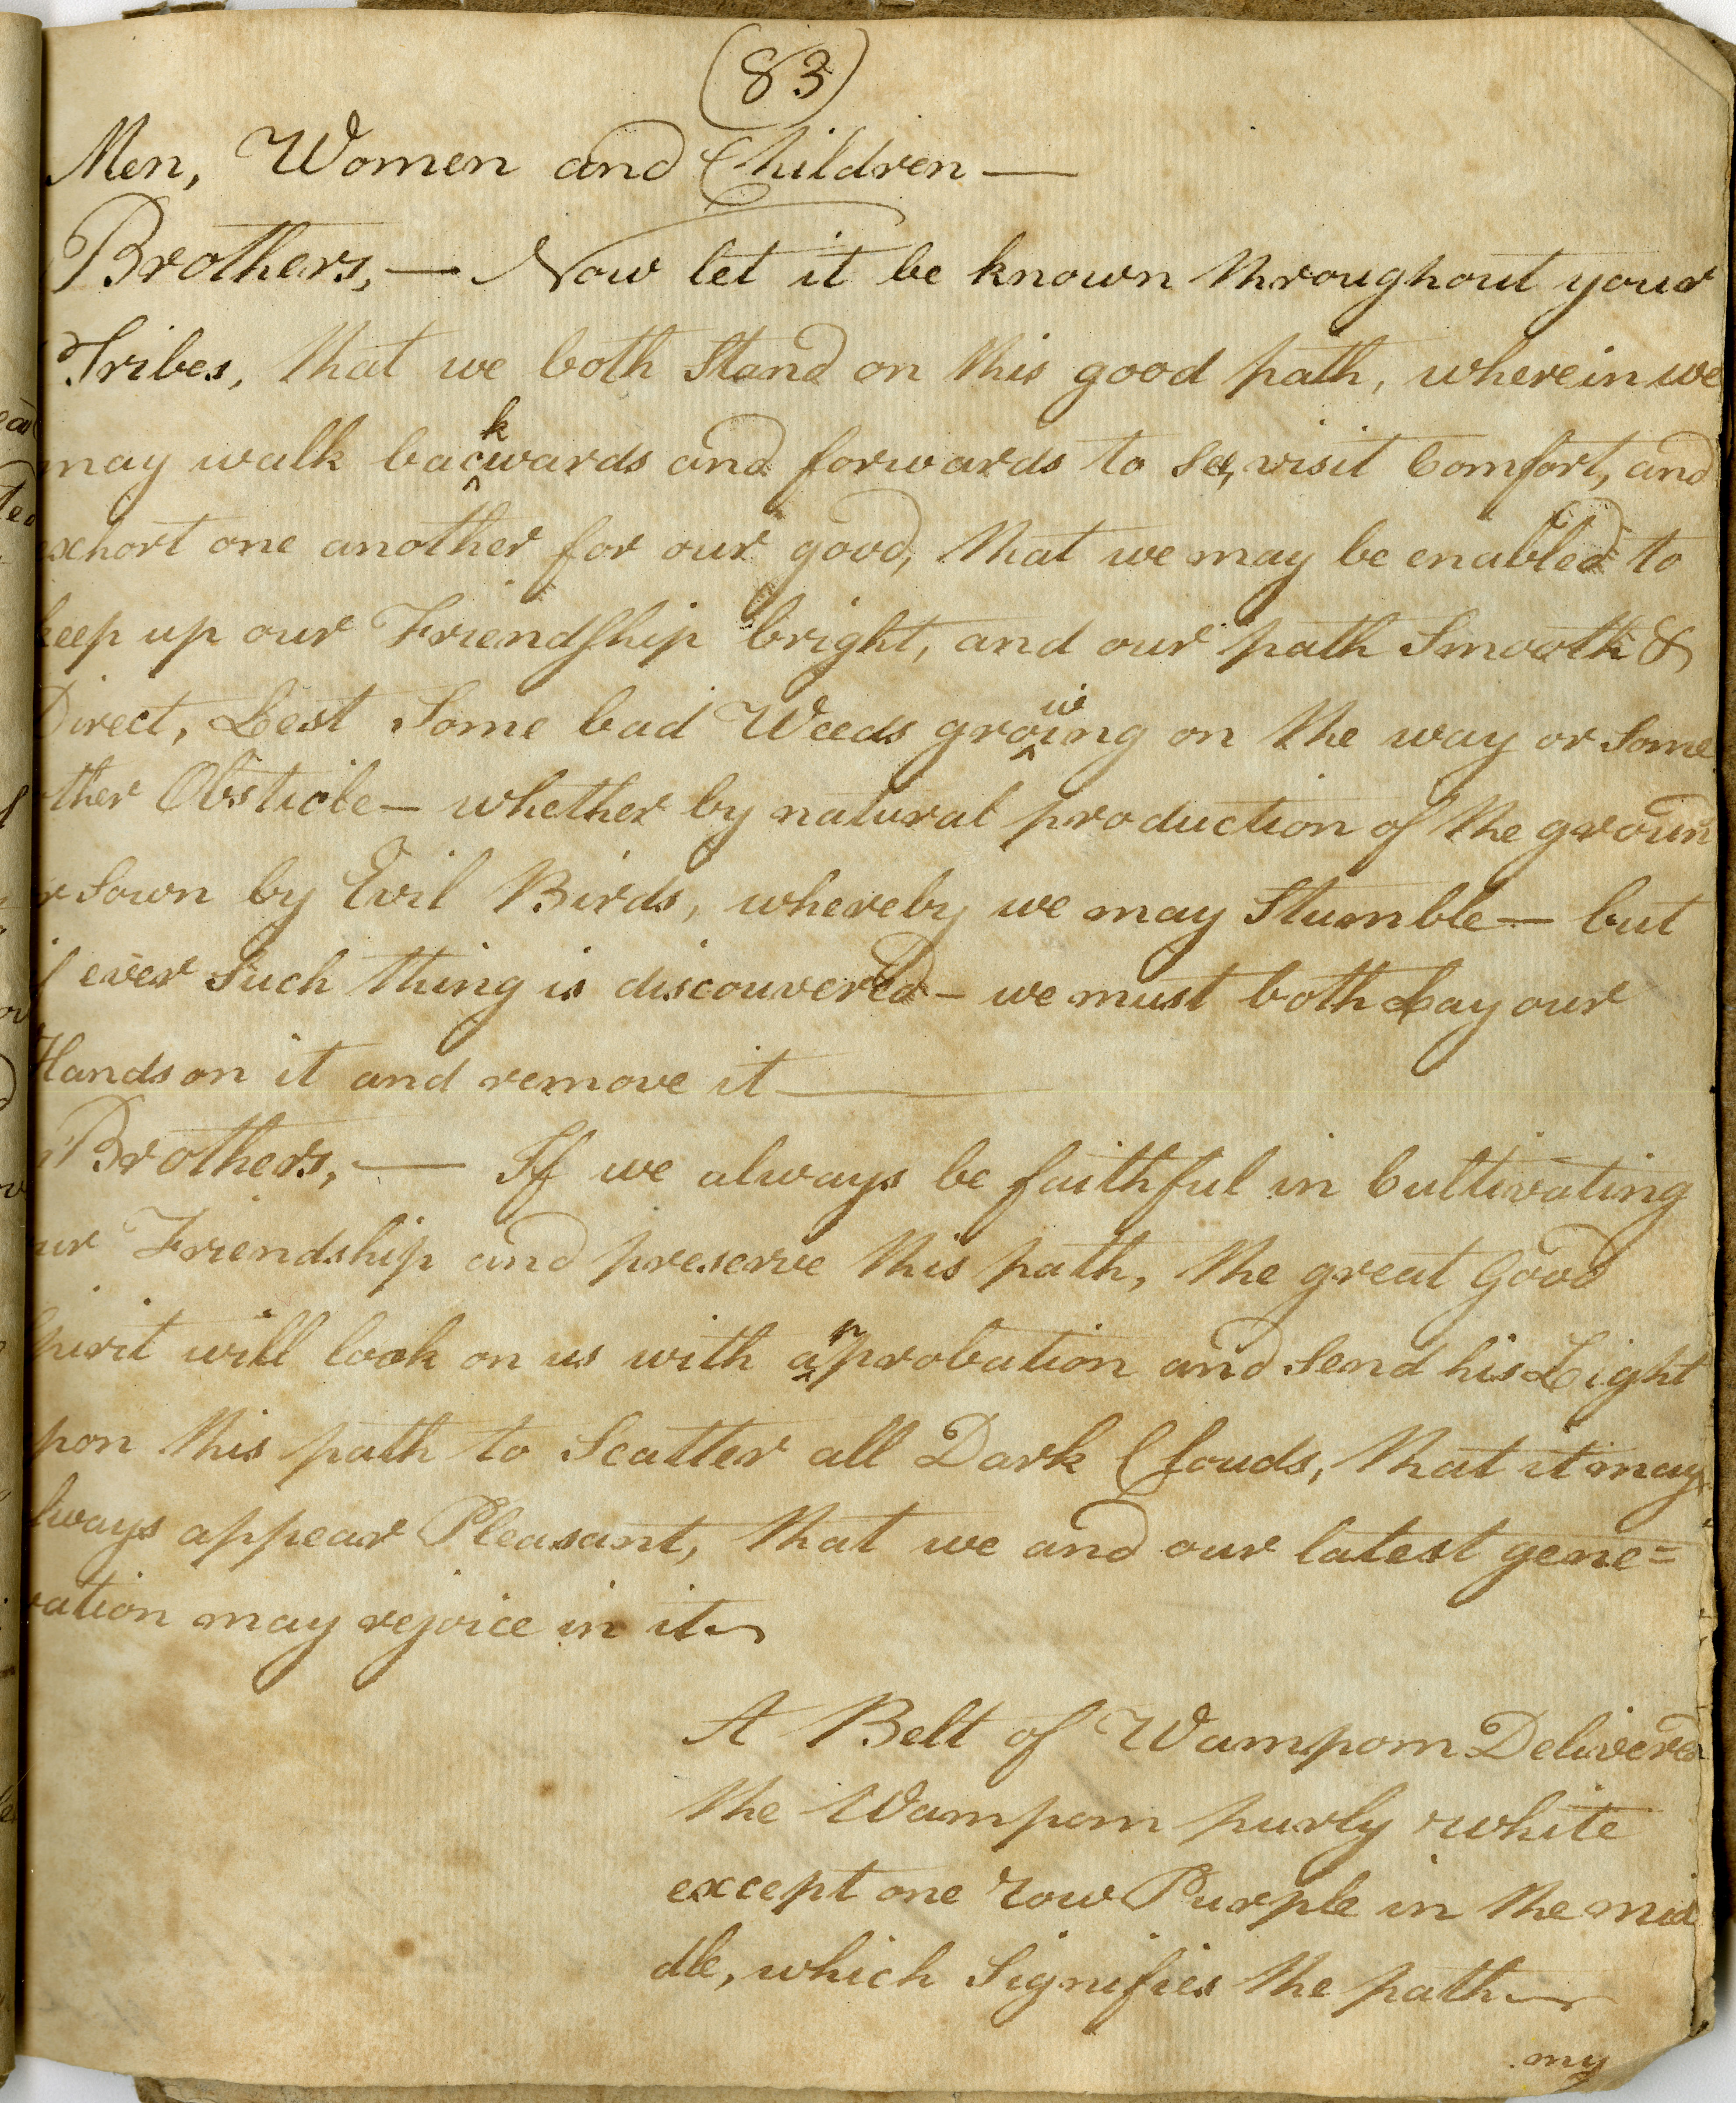 (83)
Men, Women and Children —
Brothers, — Now let it be known throughout your
Tribes, that we both Stand on this good path, wherein we
may walk backwards and forwards to See, visit Comfort, and
exhort one another for our good, that we may be enabled to
keep up our Friendship bright, and our path Smooth &
Direct, Lest Some bad Weeds growing on the way or Some
ther Obsticle — whether by natural production of the groun
r Sown by Evil Birds, whereby we may Stumble — but
if ever Such thing is discouvered — we must both Lay our
Hands on it and remove it —
Brothers, — If we always be faithful in Cultivating
ur Friendship and preserve this path, the great Good
Spirit will look on us with approbation and Send his Light
pon this path to Scatter all Dark Clouds, that it may
lways appear Pleasant, that we and our latest gene=
ration may rejoice in it
A Belt of Wampom Delivered
the Wampom purly white
except one row Purple in the mid
dle, which Signifies the path
my